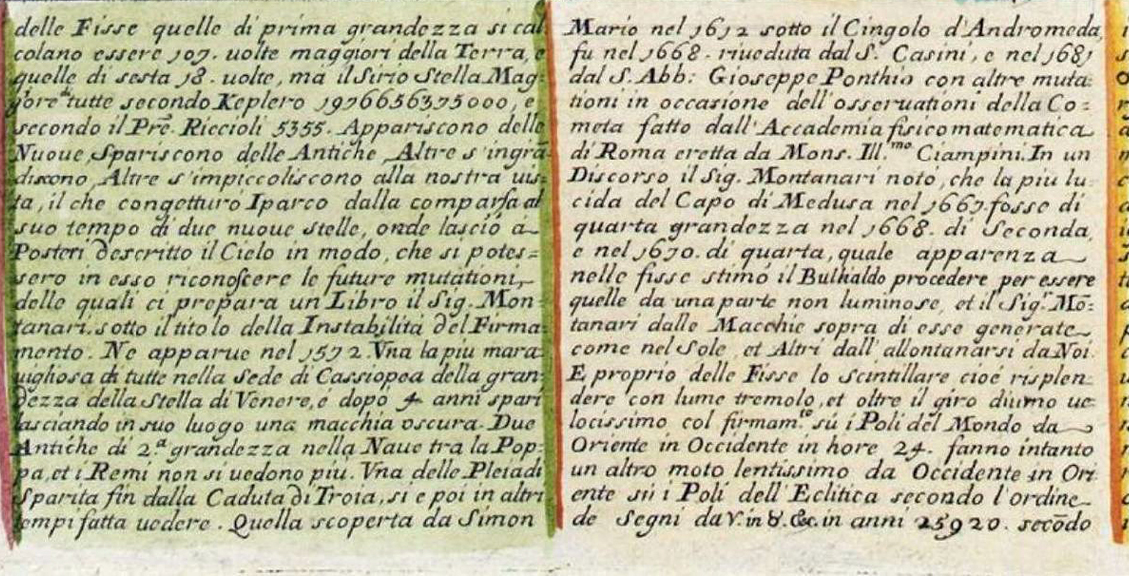 delle Fisse quelle di prima grandezza si cal
colano essere 107. uolte maggiori della Terra, e
quelle di sesta 18. uolte, ma il Sirio Stella Mag=
giore di tutte secondo Keplero 1976656375000, e
secondo il Prē. Riccioli 5355. Appariscono delle
Nuoue, Spariscono delle Antiche, Altre s'ingrā=
discono, Altre s'impiccoliscono alla nostra uis=
ta, il che congetturò Iparco dalla comparsa al
suo tempo di due nuoue stelle, onde lasciò a
Posteri descritto il Cielo in modo, che si potes=
sero in esso riconoscere le future mutationi,
delle quali ci prepara un'Libro il Sig. Mon=
tanari. sotto il titolo della Instabilità del Firma=
mento. Ne apparue nel 1572 Vna la più mara=
uigliosa di tutte nella Sede di Cassiopea della gran=
dezza della Stella di Venere, e dopo 4 anni sparì
lasciando in suo luogo una macchia oscura. Due
Antiche di 2ª grandezza nella Naue tra la Pop=
pa, et i Remi non si uedono più. Vna delle Pleiadi
Sparita fin dalla Caduta di Troia, si e poi in altri
tempi fatta uedere. Quella scoperta da Simon
Mario nel 1612 sotto il Cingolo d'Andromeda,
fu nel 1668. riueduta dal S. Casini, e nel 1681
dal S. Abb: Gioseppe Ponthio con altre muta=
tioni in occasione dell'osseruationi della Co=
meta fatto dall'Accademia fisicomatematica
di Roma eretta da Mons. Ill.mo Ciampini. In un
Discorso il Sig. Montanari notò, che la più lu=
cida del Capo di Medusa nel 1667. fosse di
quarta grandezza nel 1668. di Seconda,
e nel 1670. di quarta, quale apparenza
nelle fisse stimò il Bulhaldo procedere per essere
quelle da una parte non luminose, et il Sig.r Mō=
tanari dalle Macchie sopra di esse generate
come nel Sole et Altri dall'allontanarsi da Noi.
E proprio delle Fisse lo scintillare cioè risplen=
dere con lume tremolo, et oltre il giro diurno ue=
locissimo col firmam.to sù i Poli del Mondo da
Oriente in Occidente in hore 24. fanno intanto
un altro moto lentissimo da Occidente in Ori=
ente sù i Poli dell'Eclitica secondo l'ordine
de Segni da ♈. in ♉. &c. in anni 25920. secōdo